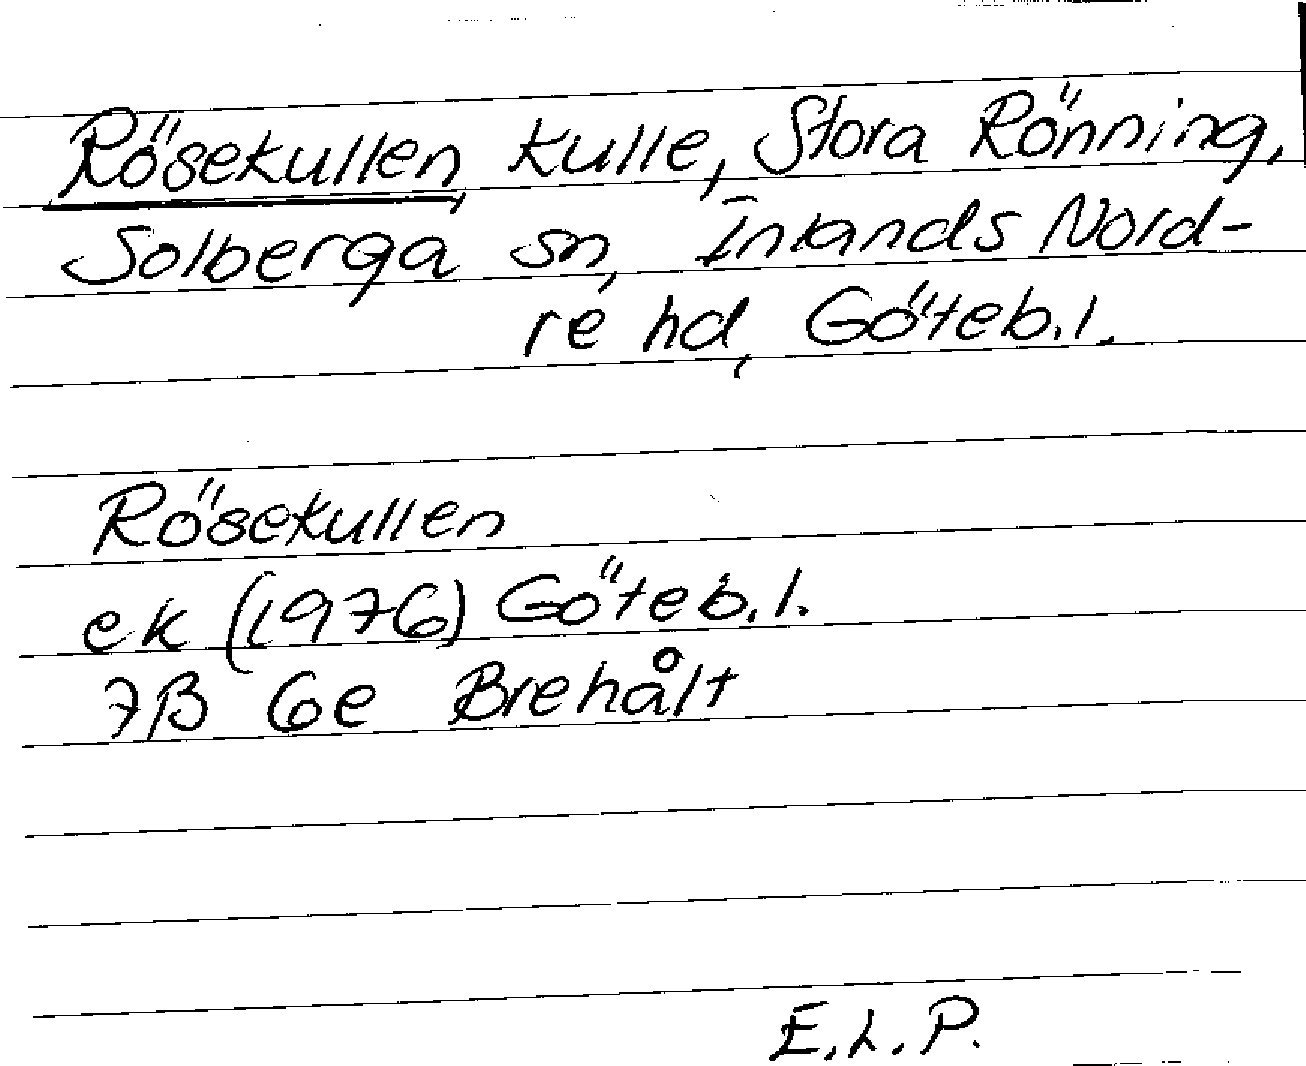 Rösekullen, kulle, Stora Rönning,
Solberga sn, Inlands Nord-
re hd, Göteb.l.
Rösekullen
ek (1976) Göteb.l.
7B 6e Brehålt
E.L.P.